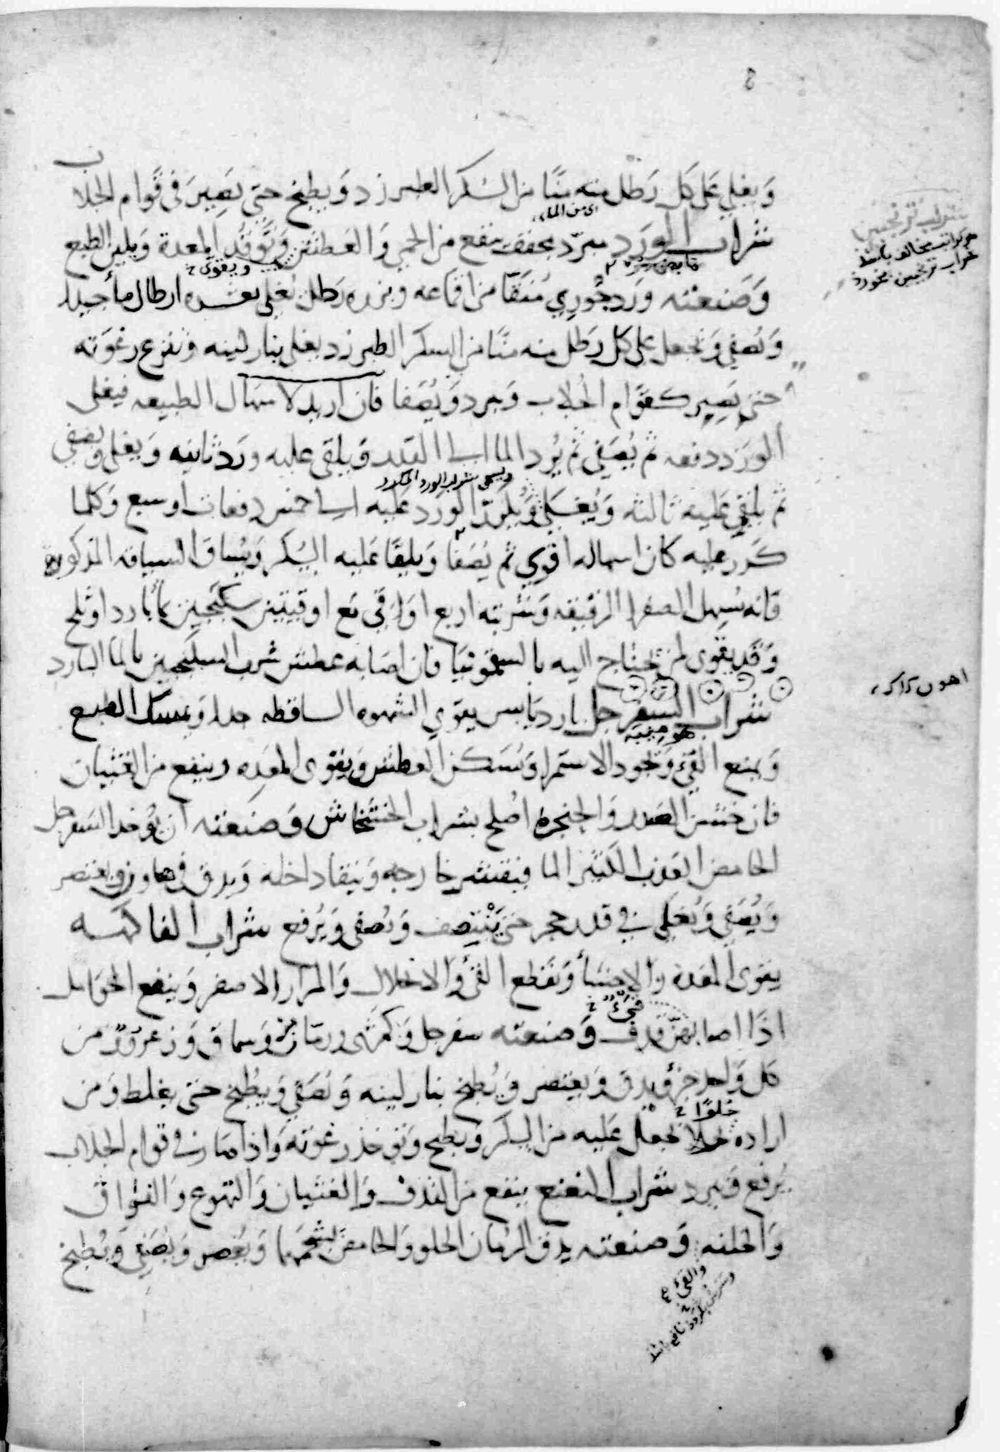 ويغلي على كل رطل منه منا من السكر الطبرزد ويطبخ حتى يصير في قوام الجلاب
شراب الورد مبرد مجفف ينفع من الحمى والعطش وتوقد المعدة ويلين الطبع
ويقوى
وصنعته ورد جوري منقا من اقماعه وبزره رطل يغلى بعشره ارطال ماء جيدا
ويصفي ويجعل على كل رطل منه منا من السكر الطبرزد يغلى بنار لينه وتنزع رغوته
حتى يصير كقوام الجلاب ويبرد ويصفا فان اريد لاسهال الطبيعه فيغلى
الورد دفعه ثم يصفي ثم يرد الما الى القدر ويلقى عليه ورد ثانيه ويغلى ويصفي
ويسمى شراب الورد المكرر
ثم يلقي عليه ثالثه ويغلي ويكرر الورد عليه الى خمس دفعات او سبع وكلما
كرر عليه كان اسهاله اقوي ثم يصفا ويلقا عليه السكر ويساق السياقه المذكوره
فانه يسهل الصفرا الرقيقه وشربته اربع اواقي مع اوقيتين سكنجبين بماء بارد او ثلج
وقد يقوى لمن يحتاج اليه بالسقمونيا فان اصابه عطش شرب السكنجبين بالما البارد
شراب السفرجل بارد يابس يقوي الشهوه الساقطه جدا ويمسك الطبع
ويمنع القيء ويجود الاستمرا ويسكن العطش ويقوى المعده وينفع من الغثيان
فان خشن الصدر والحنجرة اصلح بشراب الخشخاش وصنعته ان يوخد السفرجل
الحامض العذب الكثير الما فيقشر خارجه وينقا داخله ويدق في هاون ويعتصر
ويصفي ويغلي في قدر حجر حتى ينتصف ويصفى ويرفع شراب الفاكهه
يقوى المعدة والاحشاء ويقطع القيء والانحلال والمرار الاصفر وينفع الحوامل
قيء
اذا اصابهن قذف وصنعته سفرجل وكمثرى ورمان مز وسماق وزعرور من
كل واحد جزء يدق ويعتصر ويطبخ بنار لينه ويصفي ويطبخ حتى يغلط ومن
حلوا
اراده محلا يجعل عليه من السكر ويطبخ وتوخذ رغوته واذا صار في قوام الجلاب
يرفع ويبرد شراب المنعنع ينفع من القذف والغثيان والتهوع والفواق
والخلفه وصنعته يدق الرمان الحلو والحامض بشحمهما ويعصر ويصفي ويطبخ
والقيء